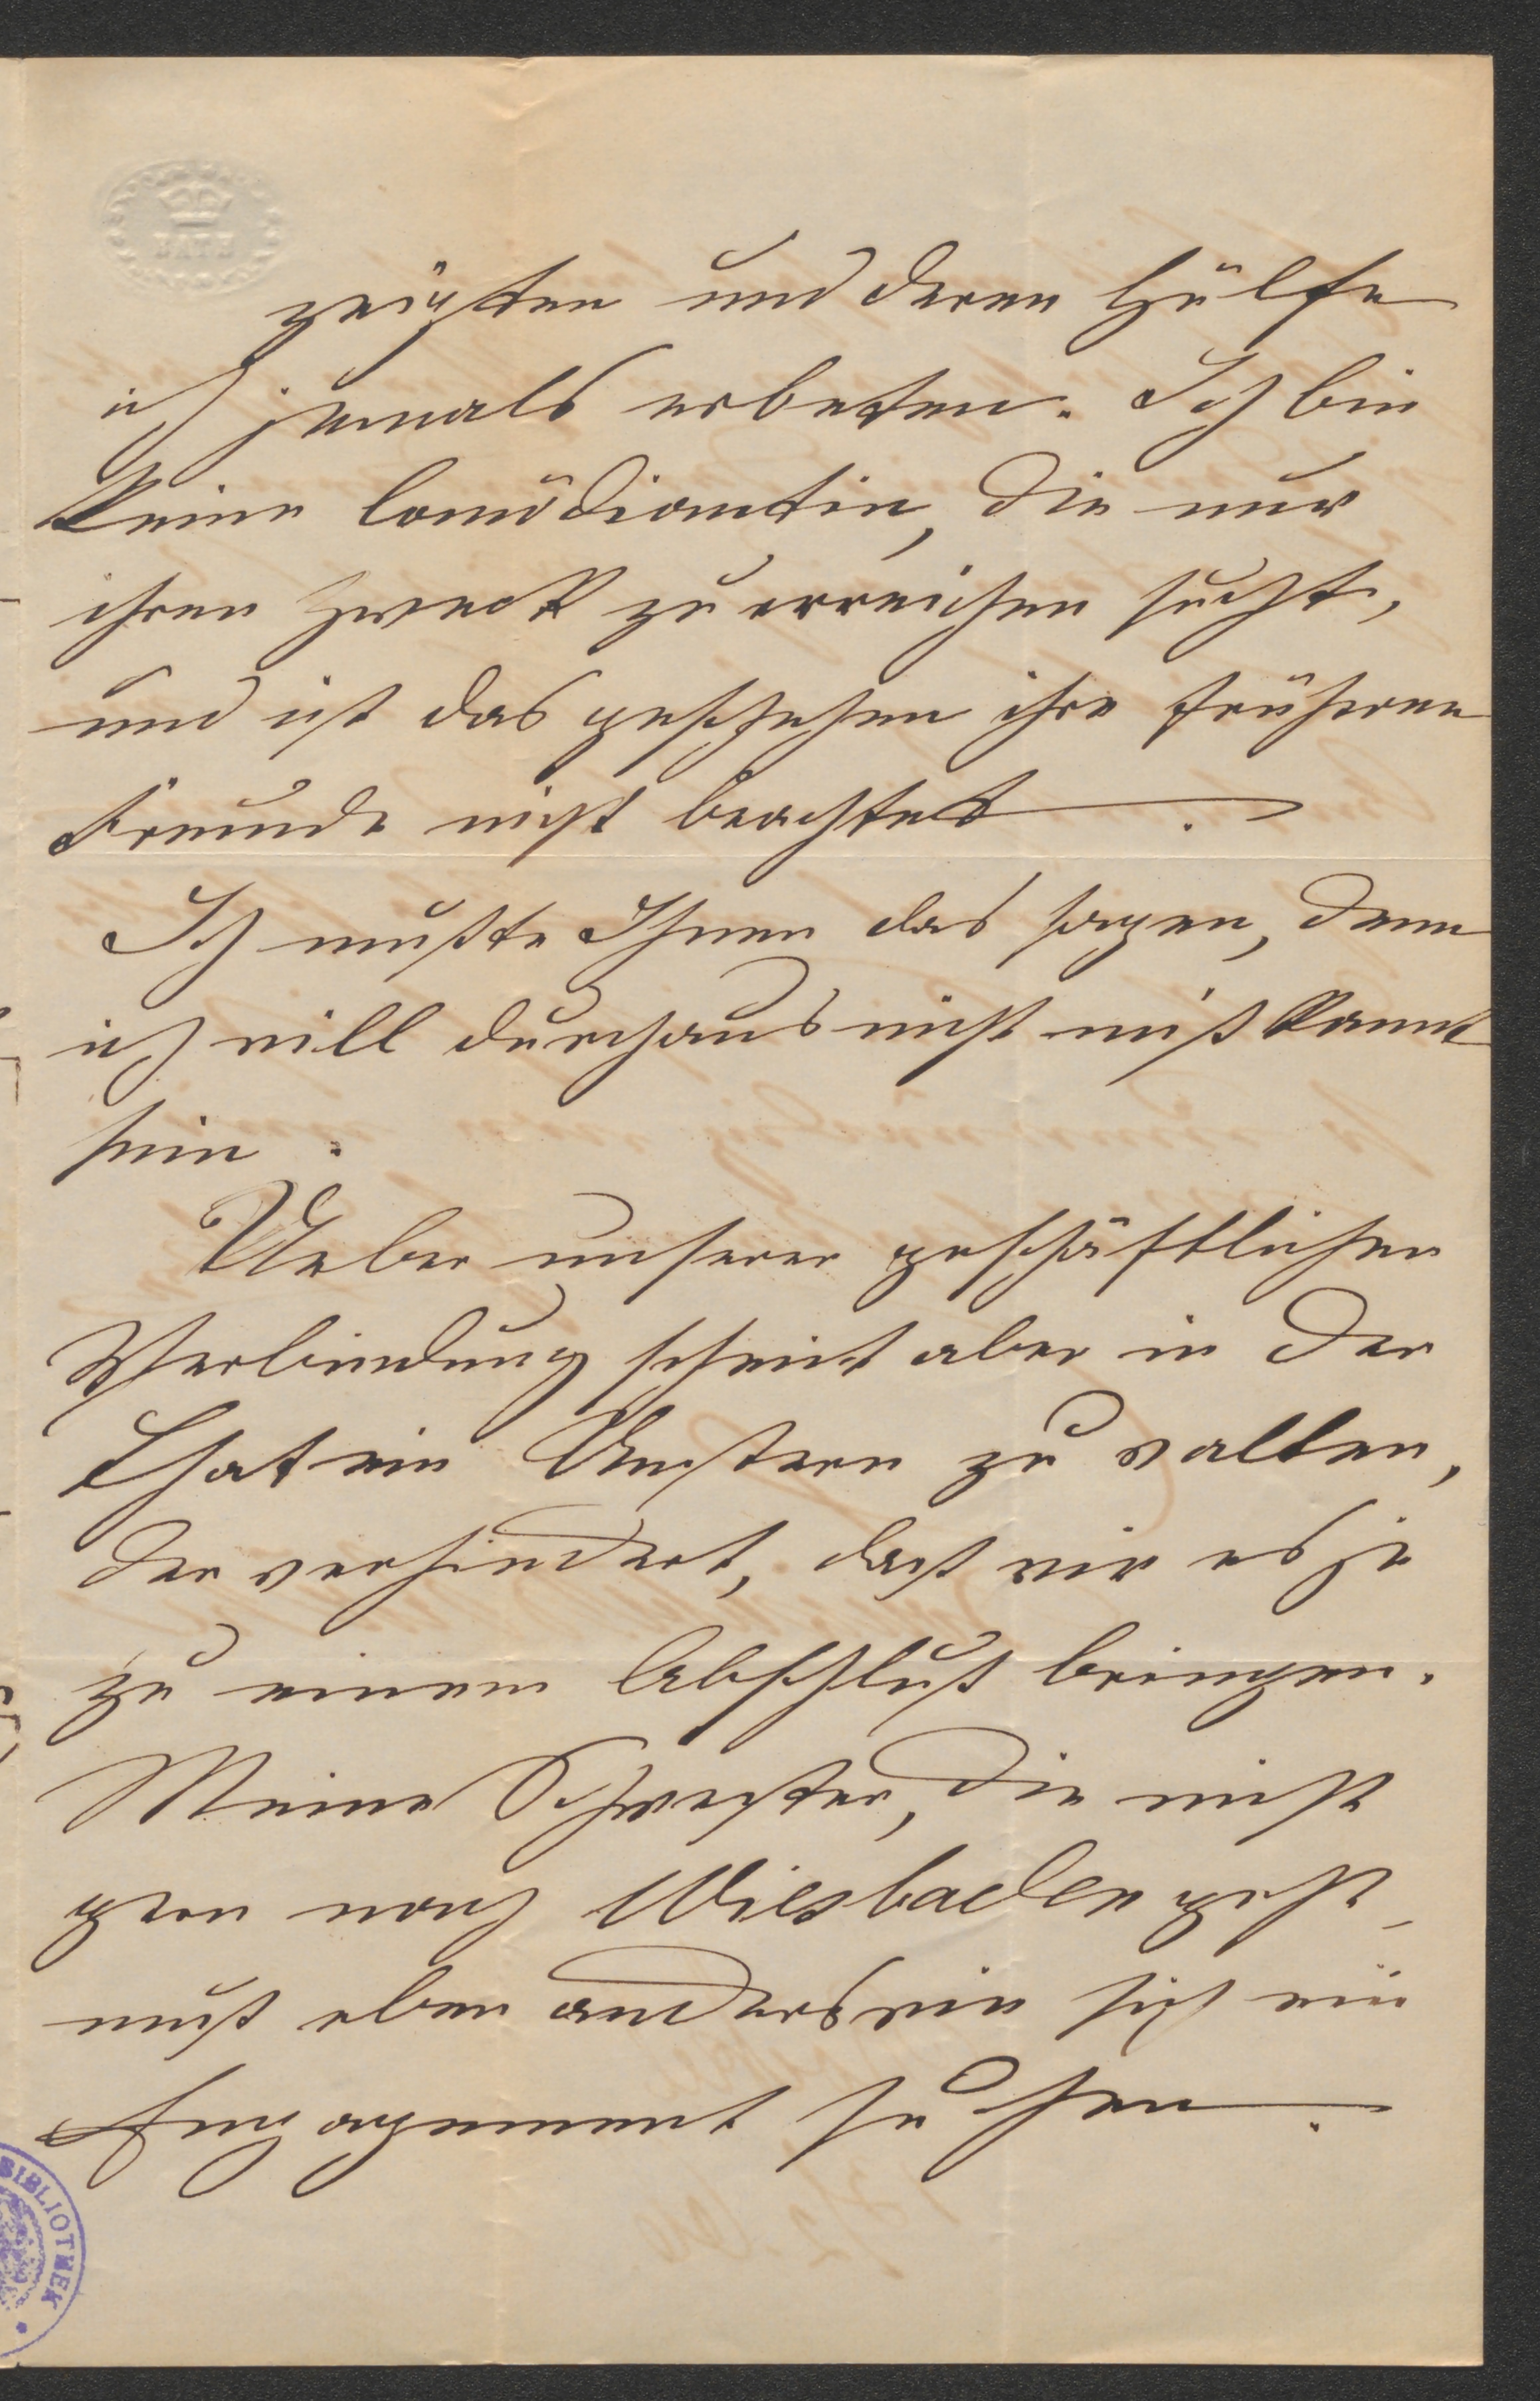 BATH
zeigten und deren Hülfe
ich jemals erbeten. Ich bin
keine Comödiantin, die nur
ihren Zweck zu erreichen sucht,
und ist das geschehen ihre früheren
Freunde nicht beachtet.
Ich mußte Ihnen das sagen, denn
ich will durchaus nicht mißkannt
sein.
Ueber unserer geschäftlichen
Verbindung scheint aber in der
That ein Unstern zu walten,
der verhindert, daß wir es je
zu einem Abschluß bringen.
Meine Schwester, die nicht
gern nach Wiesbaden geht,
muß eben anderswie sich ein
Engagement suchen.
BIBLIOTHEK